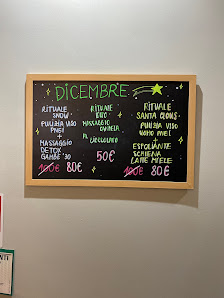 DICEMBRE
RITUALE
SNOW
PULIZIA VISO
PNEI
+
MASSAGGIO
DETOX
GAMBE '30
100€ 80€
RITUALE
MASSAGGIO
AL
CIOCCOLATO
50€
RITUALE
SANTA CLAUS
PULIZIA VISO
UOMO PNEI
+
ESFOLIANTE
SCHIENA
LATTE MIELE
100€ 80€